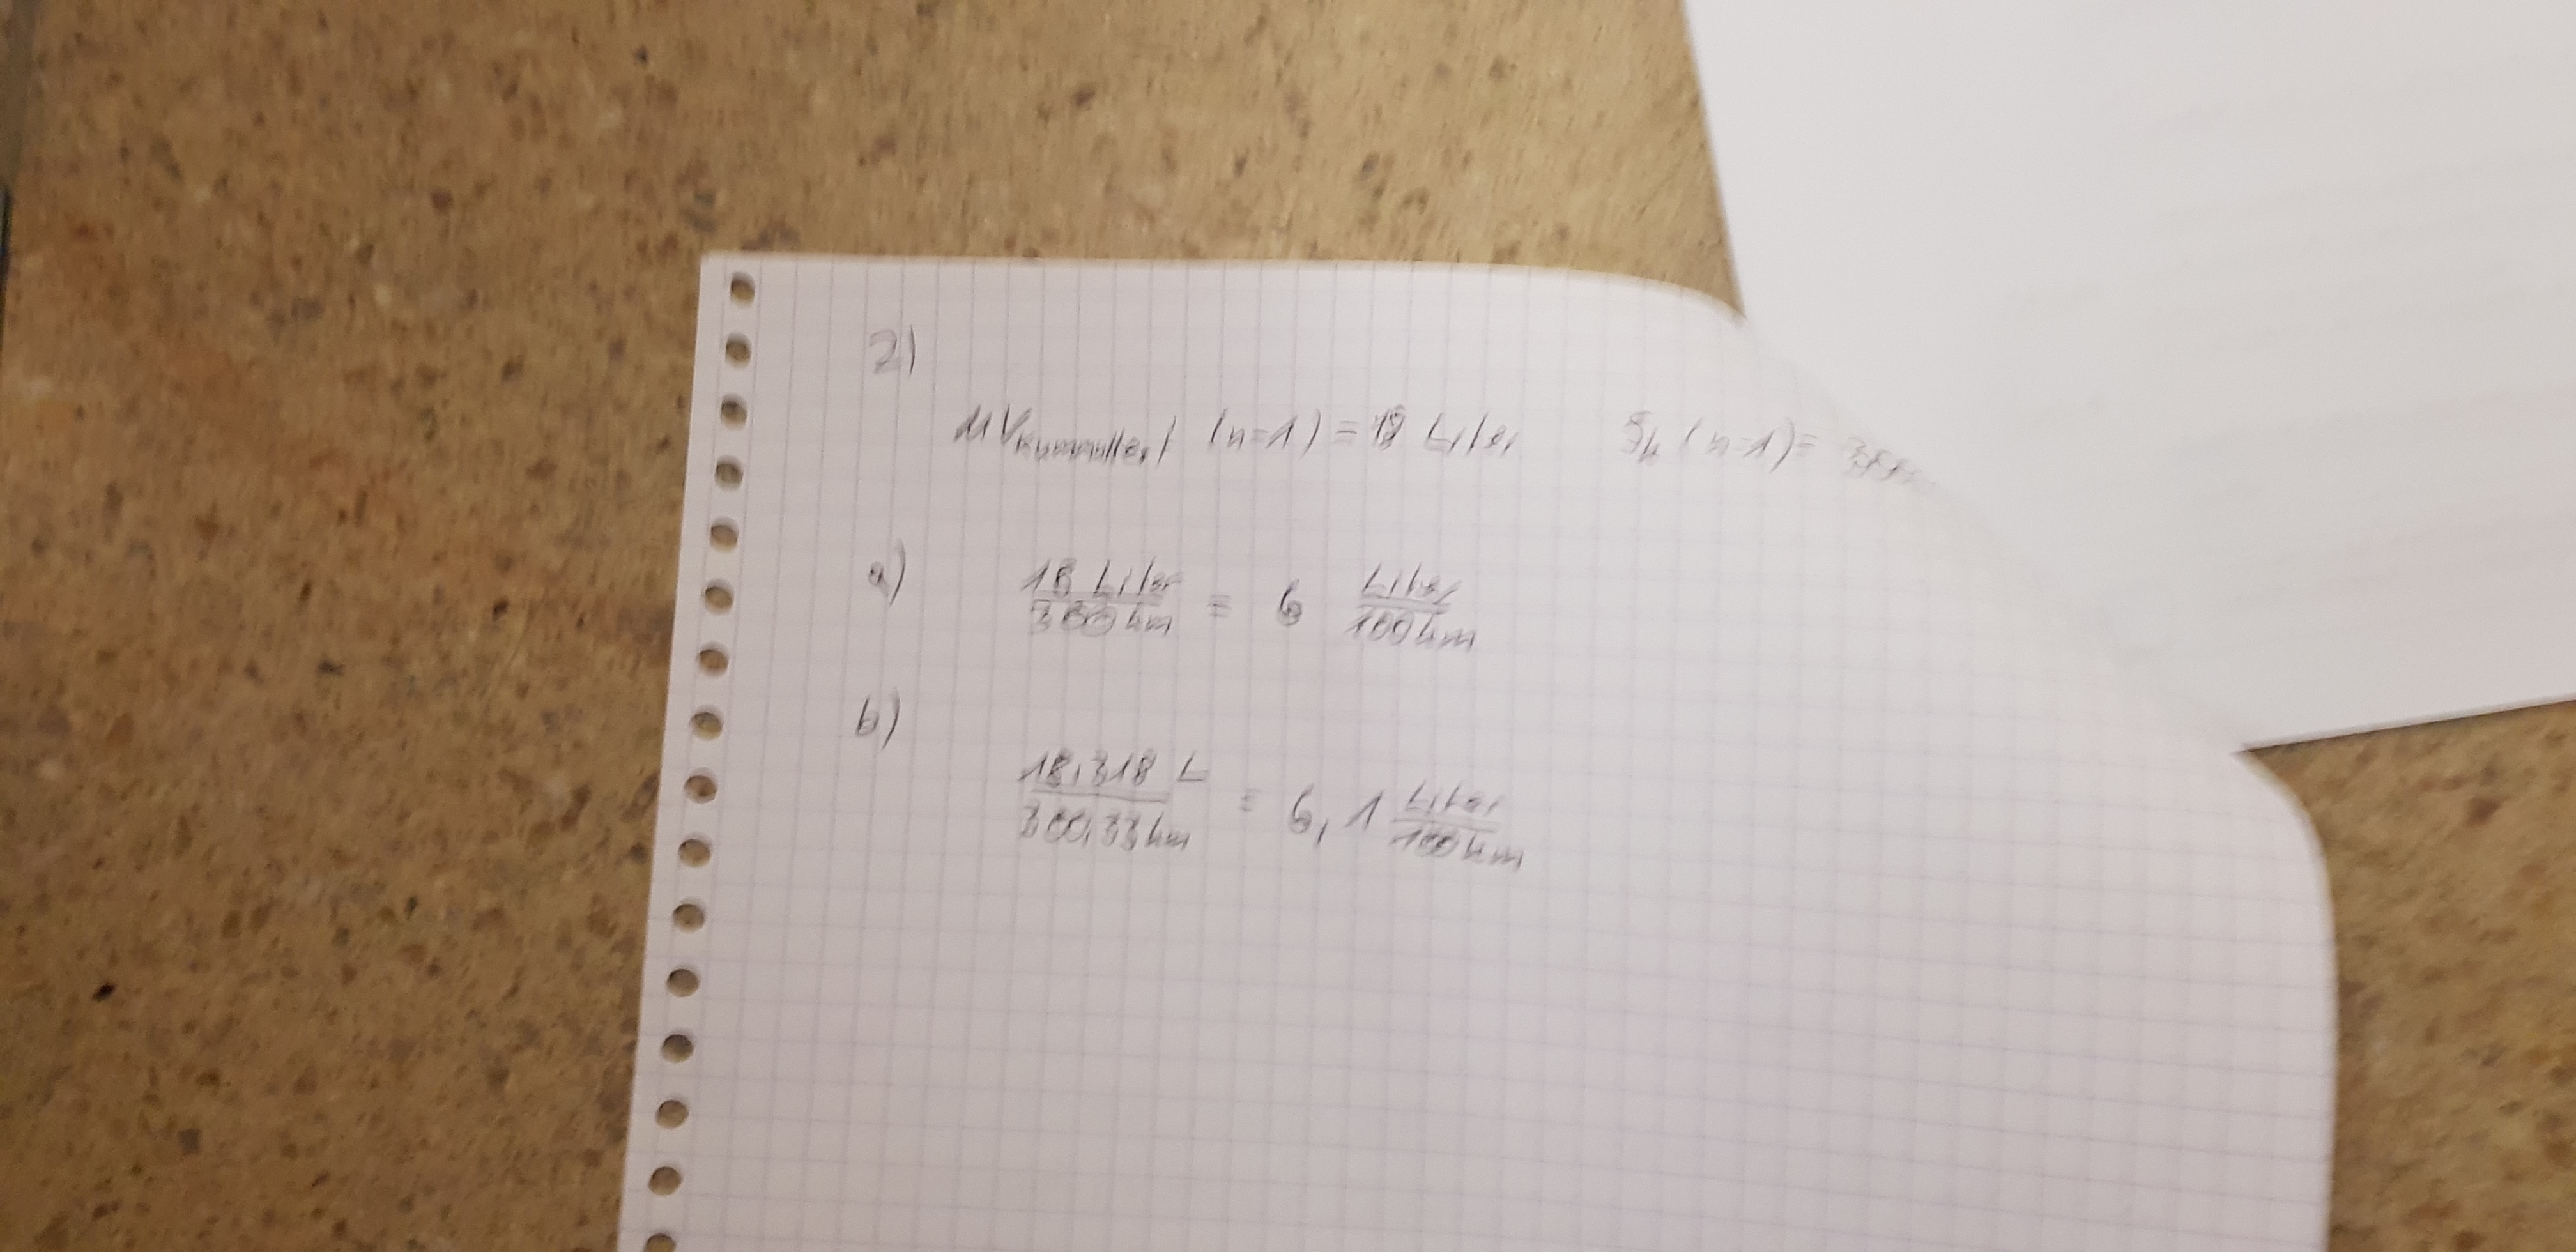 2)
MV kummuliert (n-1) = 18 Liter Sk (n-1) =
a) 18 Liter / 300 km = 6 Liter / 100 km
b)
18,318 L / 300,33 km = 6,1 Liter / 100 km